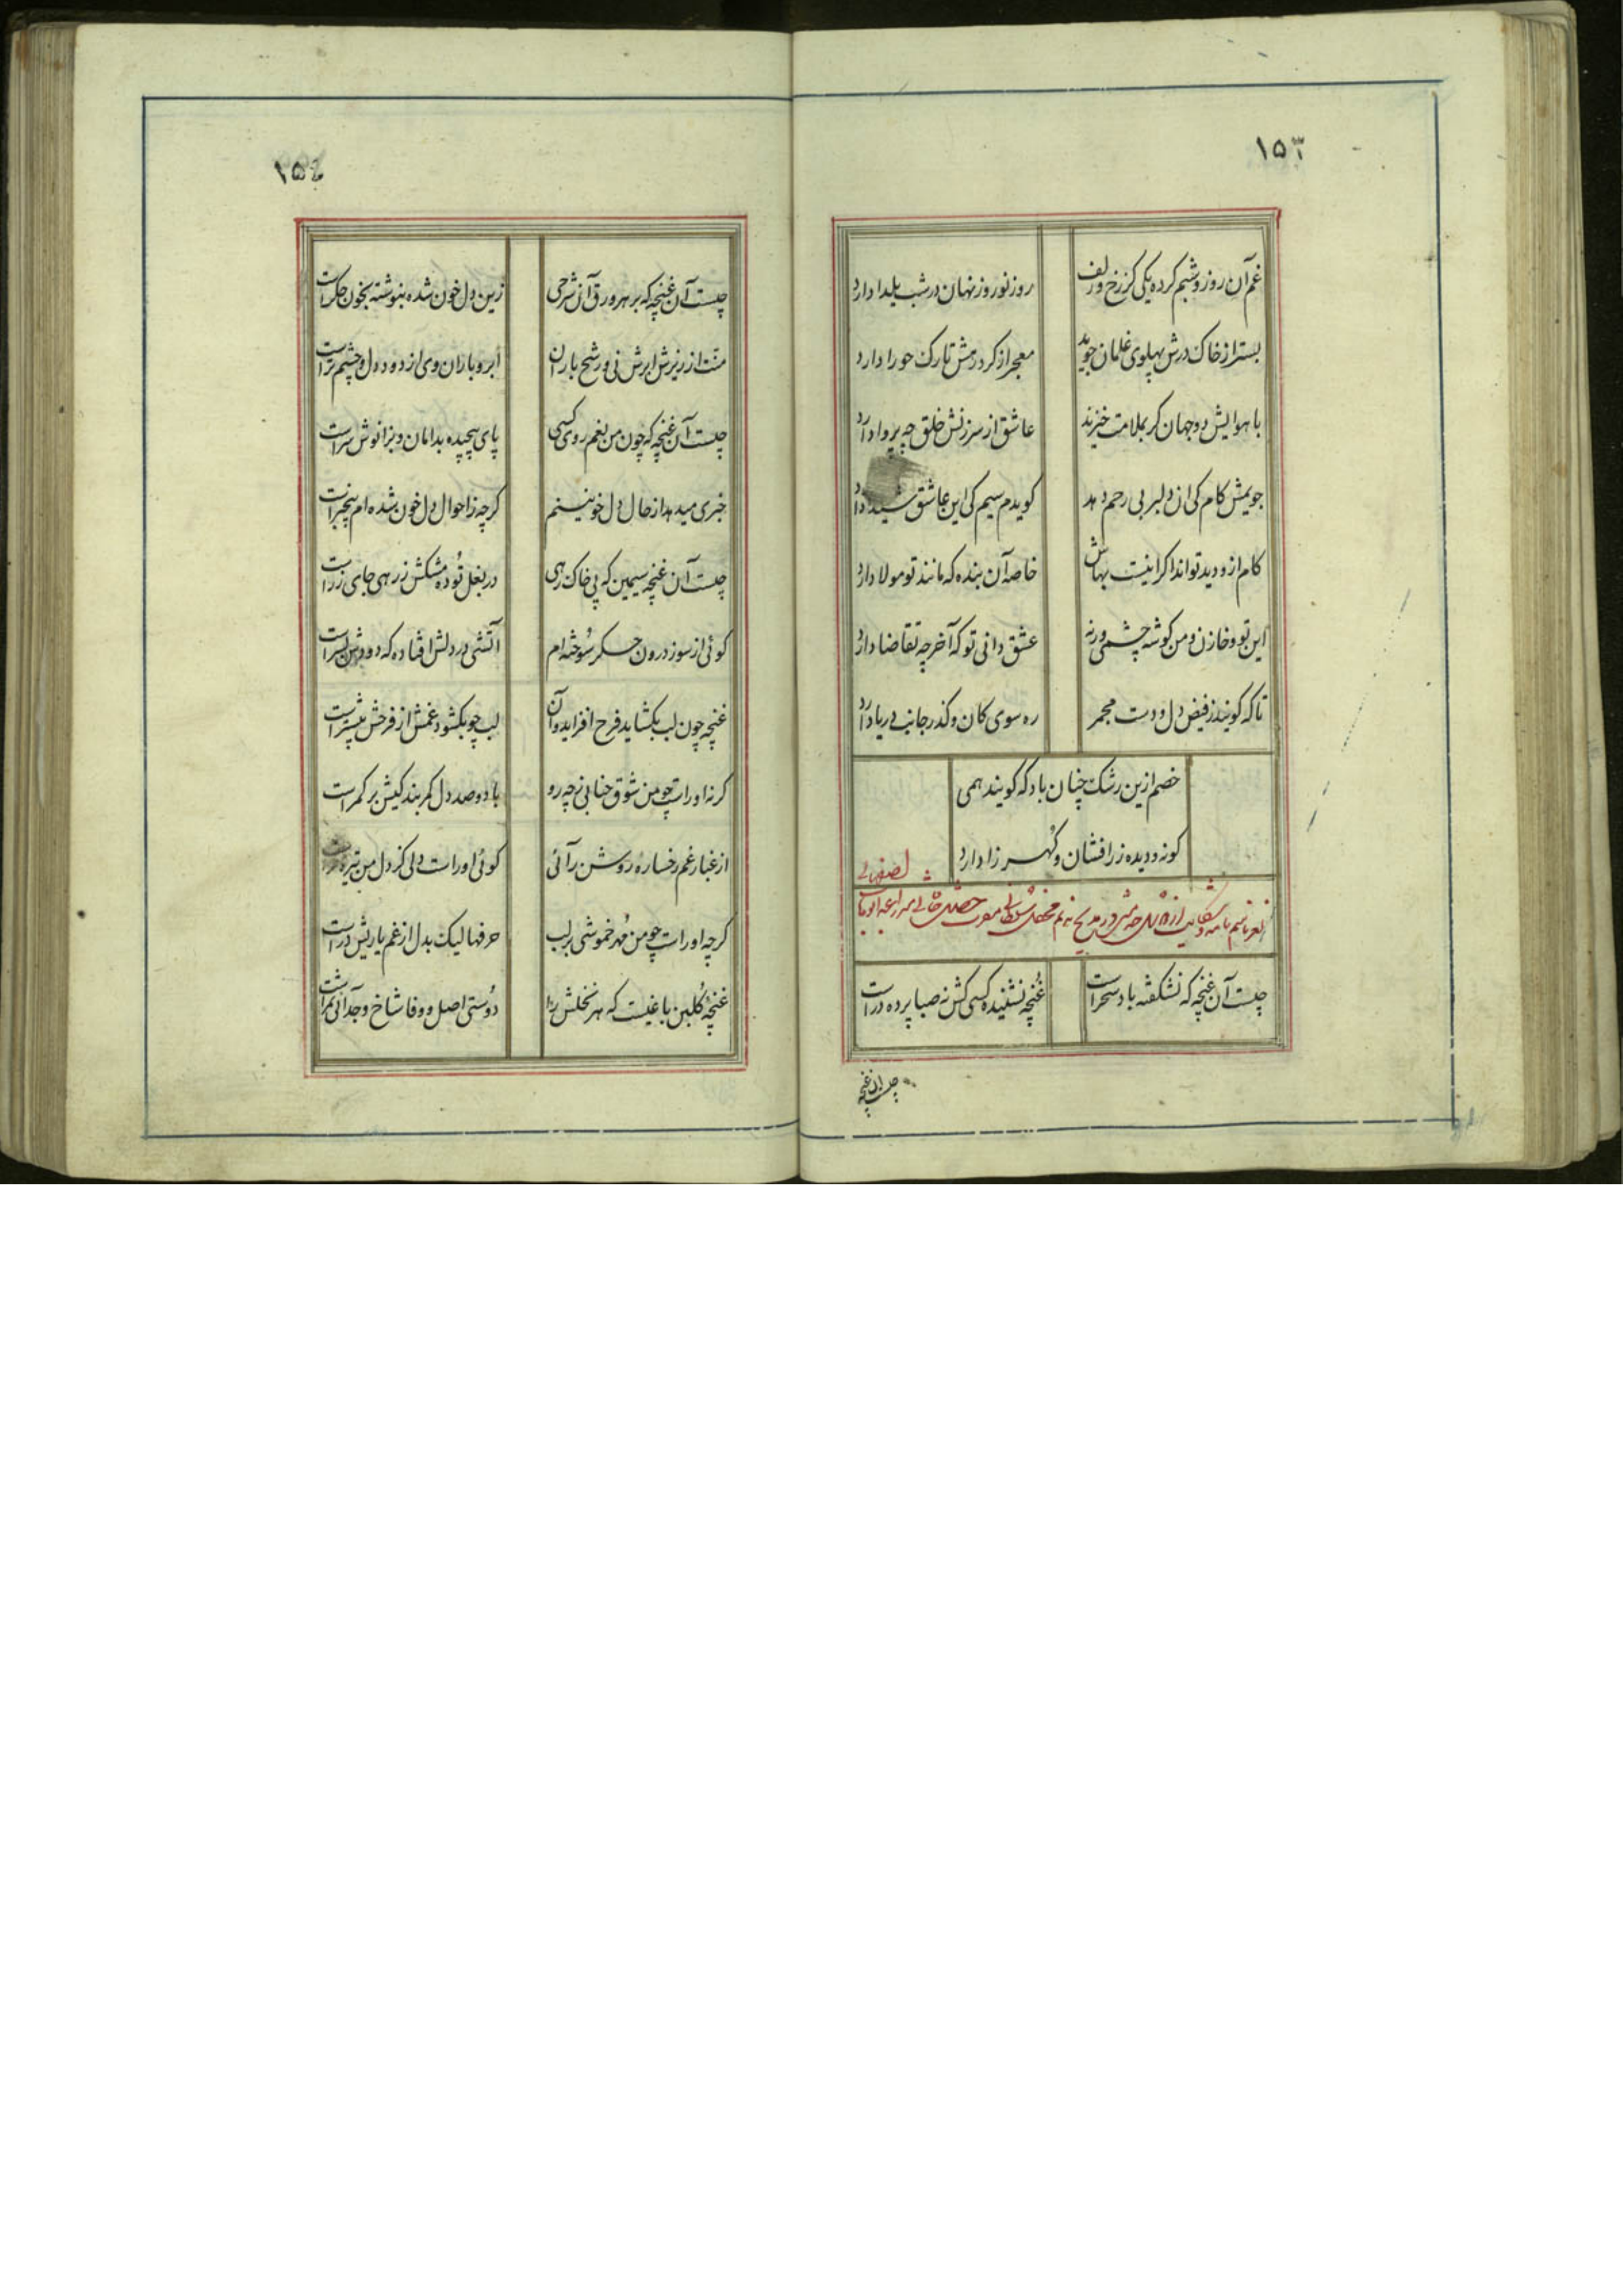 ۱۵۳
غم آن روز و شبم کرده یکی کز رخ و زلف
روز نوروز نهان در شب یلدا دارد
بستر از خاک درش پهلوی غلمان جوید
معجر از کرد رهش تارک حورا دارد
با هوایش دو جهان کر بملامت خیزند
عاشق از سرزنش خلق چه پروا دارد
جویمش کام کی آن دلبر بی رحم دهد
کویدم سیم کی این عاشق شیدا دارد
کام ازو دید تواند اکر اینست بهاش
خاصه آن بنده که مانند تو مولا دارد
این تو و خازن و من کوشه چشمی ورنه
عشق دانی تو که آخر چه تقاضا دارد
تا که کویند ز فیض دل و دست مجمر
ره سوی کان و کذر جانب دریا دارد
خصم ازین رشک چنان باد که کویند همی
کو ز دو دیده زر افشان و کهر زا دارد
چیست آن غنچه که نشکفته باد سحر است
غنچه نشنیده کسی کش نه صبا پرده در است
چیست آن غنچه
۱۵٤
چیست آن غنچه که بر هر ورق آن شرحی
زین دل خون شده بنوشته بخون جکر است
منت از ریزش ابرش نی و رشح باران
ابر و باران وی از دود دل و چشم تر است
چیست آن غنچه که چون من بغم روی کسی
پای پیچیده بدامان و بزانوش سر است
خبری میدهد از حال دل خونینم
کرچه ز احوال دل خون شده ام بیخبر است
چیست آن غنچه سیمین که پی خاک رهی
در بغل توده مشکش ز رهی جای زر است
کوئی از سوز درون جکر سوخته ام
آتشی در دلش افتاده که دودش بسر است
غنچه چون لب بکشاید فرح افزاید و آن
لب چو بکشود غمش از فرحش بیشتر است
کر نه او راست چو من شوق جنابی ز چه رو
با دو صد دل کمر بندکیش بر کمر است
از غبار غم رخساره روشن رآئی
کوئی او راست دلی کز دل من تیره تر است
کرچه او راست چو من مهر خموشی بر لب
حرفها لیک بدل از غم یاریش در است
غنچه کلبن باغیست که هر نخلش را
دوستی اصل و وفا شاخ و جدائی ثمر است